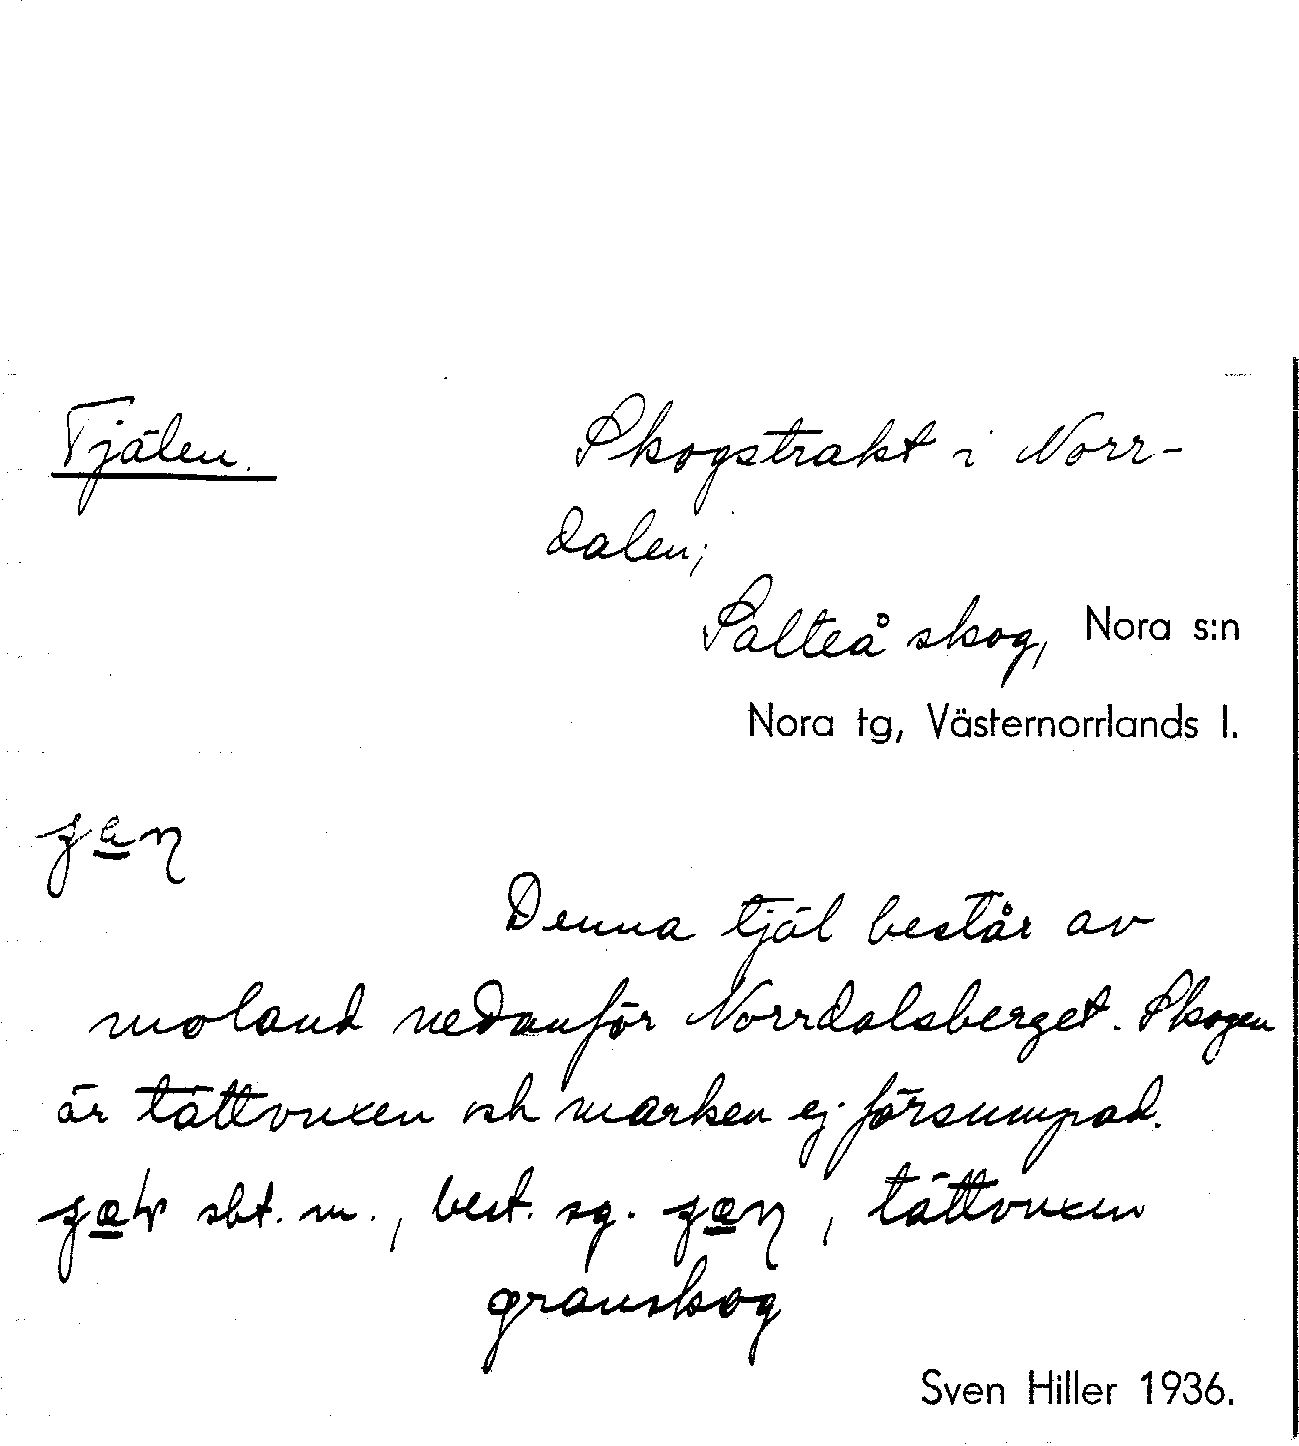 Tjälen. Skogstrakt i Norr-
dalen;
Salteå skog, Nora s:n
Nora tg, Västernorrlands l.
Denna tjäl består av
moland nedanför Norrdalsberget. Skogen
är tättvuxen och marken ej försumpad.
sbt. m., best. sg. , tättvuxen
granskog
Sven Hiller 1936.